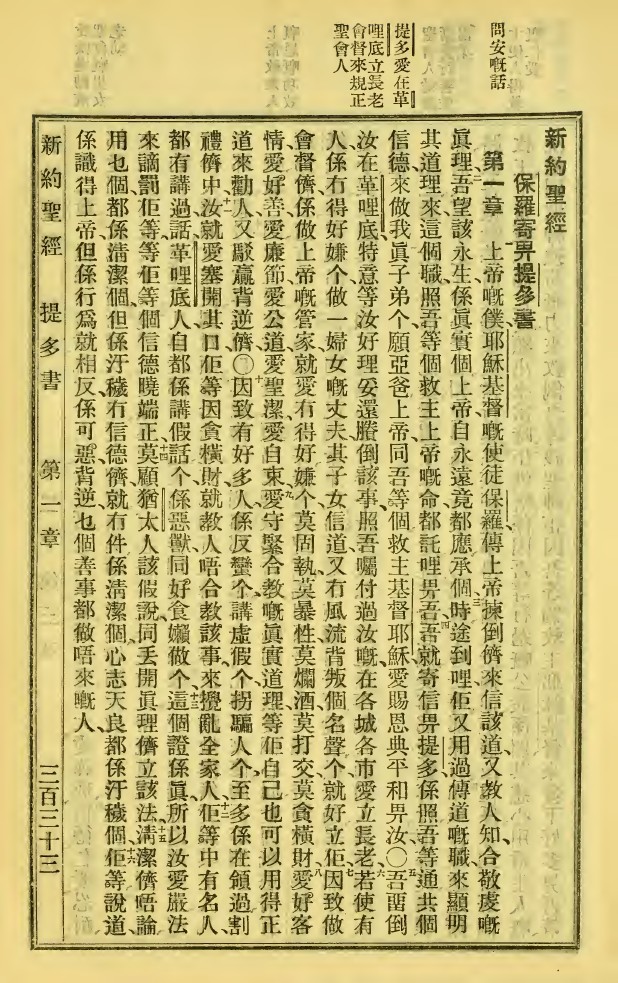 問安嘅話
提多愛在革
哩底立長老
會督來規正
聖會人
新約聖經
保羅寄畀提多書
第一章 上帝嘅僕耶穌基督嘅使徒保羅、傳上帝揀倒儕來信該道、又教人知合敬虔嘅
眞理、二吾望該永生、係眞實個上帝、自永遠竟都應承個、三時途到哩、佢又用過傳道嘅職來顯明
其道理來、這個職、照吾等個救主上帝嘅命、都託哩畀吾、四吾就寄信畀提多、係照吾等通共個
信德、來做我眞子弟个、願亞爸上帝、同吾等個救主基督耶穌、愛賜恩典平和畀汝、〇五吾留倒
汝在革哩底、特意等汝好理妥還賸倒該事、照吾囑付過汝嘅、在各城各市、愛立長老、六若使有
人係冇得好嫌个、做一婦女嘅丈夫、其子女信道、又冇風流背叛個名聲个、就好立佢、七因致做
會督儕、係做上帝嘅管家、就愛冇得好嫌个、莫固執、莫暴性、莫爛酒、莫打交、莫貪橫財、八愛好客
情、愛好善、愛廉節、愛公道、愛聖潔、愛自束、九愛守緊合教嘅眞實道理、等佢自己也可以用得正
道來勸人、又駁贏背逆儕、〇十因致有好多人、係反蠻个、講虛假个、拐騙人个、至多係在領過割
禮儕中、十一汝就愛塞開其口、佢等因貪橫財、就教人唔合教該事、來攪亂全家人、十二佢等中有名人、
都有講過話、革哩底人自都係講假話个、係惡獸、同好食嬾做个、十三這個證係眞、所以汝愛嚴法
來謫罰佢等、等佢等個信德曉端正、十四莫顧猶太人該假說、同丢開眞理儕立該法、十五淸潔儕唔論
用乜個、都係淸潔個、但係汙穢冇信德儕、就冇件係淸潔個、心志天良都係汙穢個、十六佢等說道
係識得上帝、但係行爲就相反、係可惡、背逆、乜個善事都做唔來嘅人、
新約聖經 提多書 第一章 三百三十三